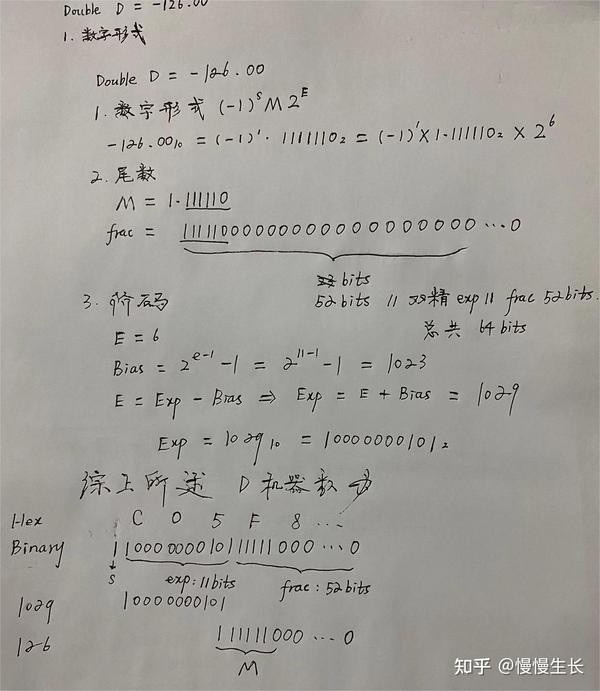 Double D = -126.00
1. 数字形式
Double D = -126.00
1. 数字形式 (-1)^S M 2^E
-126.00₁₀ = (-1)^1 · 1111110₂ = (-1)^1 × 1.111110₂ × 2^6
2. 尾数
M = 1.111110
frac = 11111000000000000000000000...0
bits
52 bits // 双精 exp 11 frac 52 bits.
总共 64 bits
3. 阶码
E = 6
Bias = 2^(e-1) - 1 = 2^(11-1) - 1 = 1023
E = Exp - Bias ⇒ Exp = E + Bias = 1029
Exp = 1029₁₀ = 10000000101₂
综上所述 D 机器数为
Hex C 0 5 F 8 ...
Binary 1 10000000101 11111000...0
S exp: 11bits frac: 52bits
1029 10000000101
126 111111000...0
M
知乎 @慢慢生长